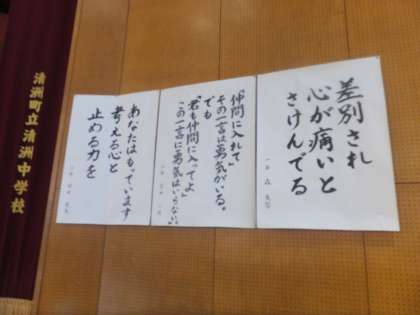 差別され
心が痛いと
さけんでる
「仲間に入れて」
その一言は勇気がいる。
でも
「君も仲間に入ってよ」
この一言に勇気はいらない。
あなたはもっています
考える心と
止める力を
清洲町立清洲中学校